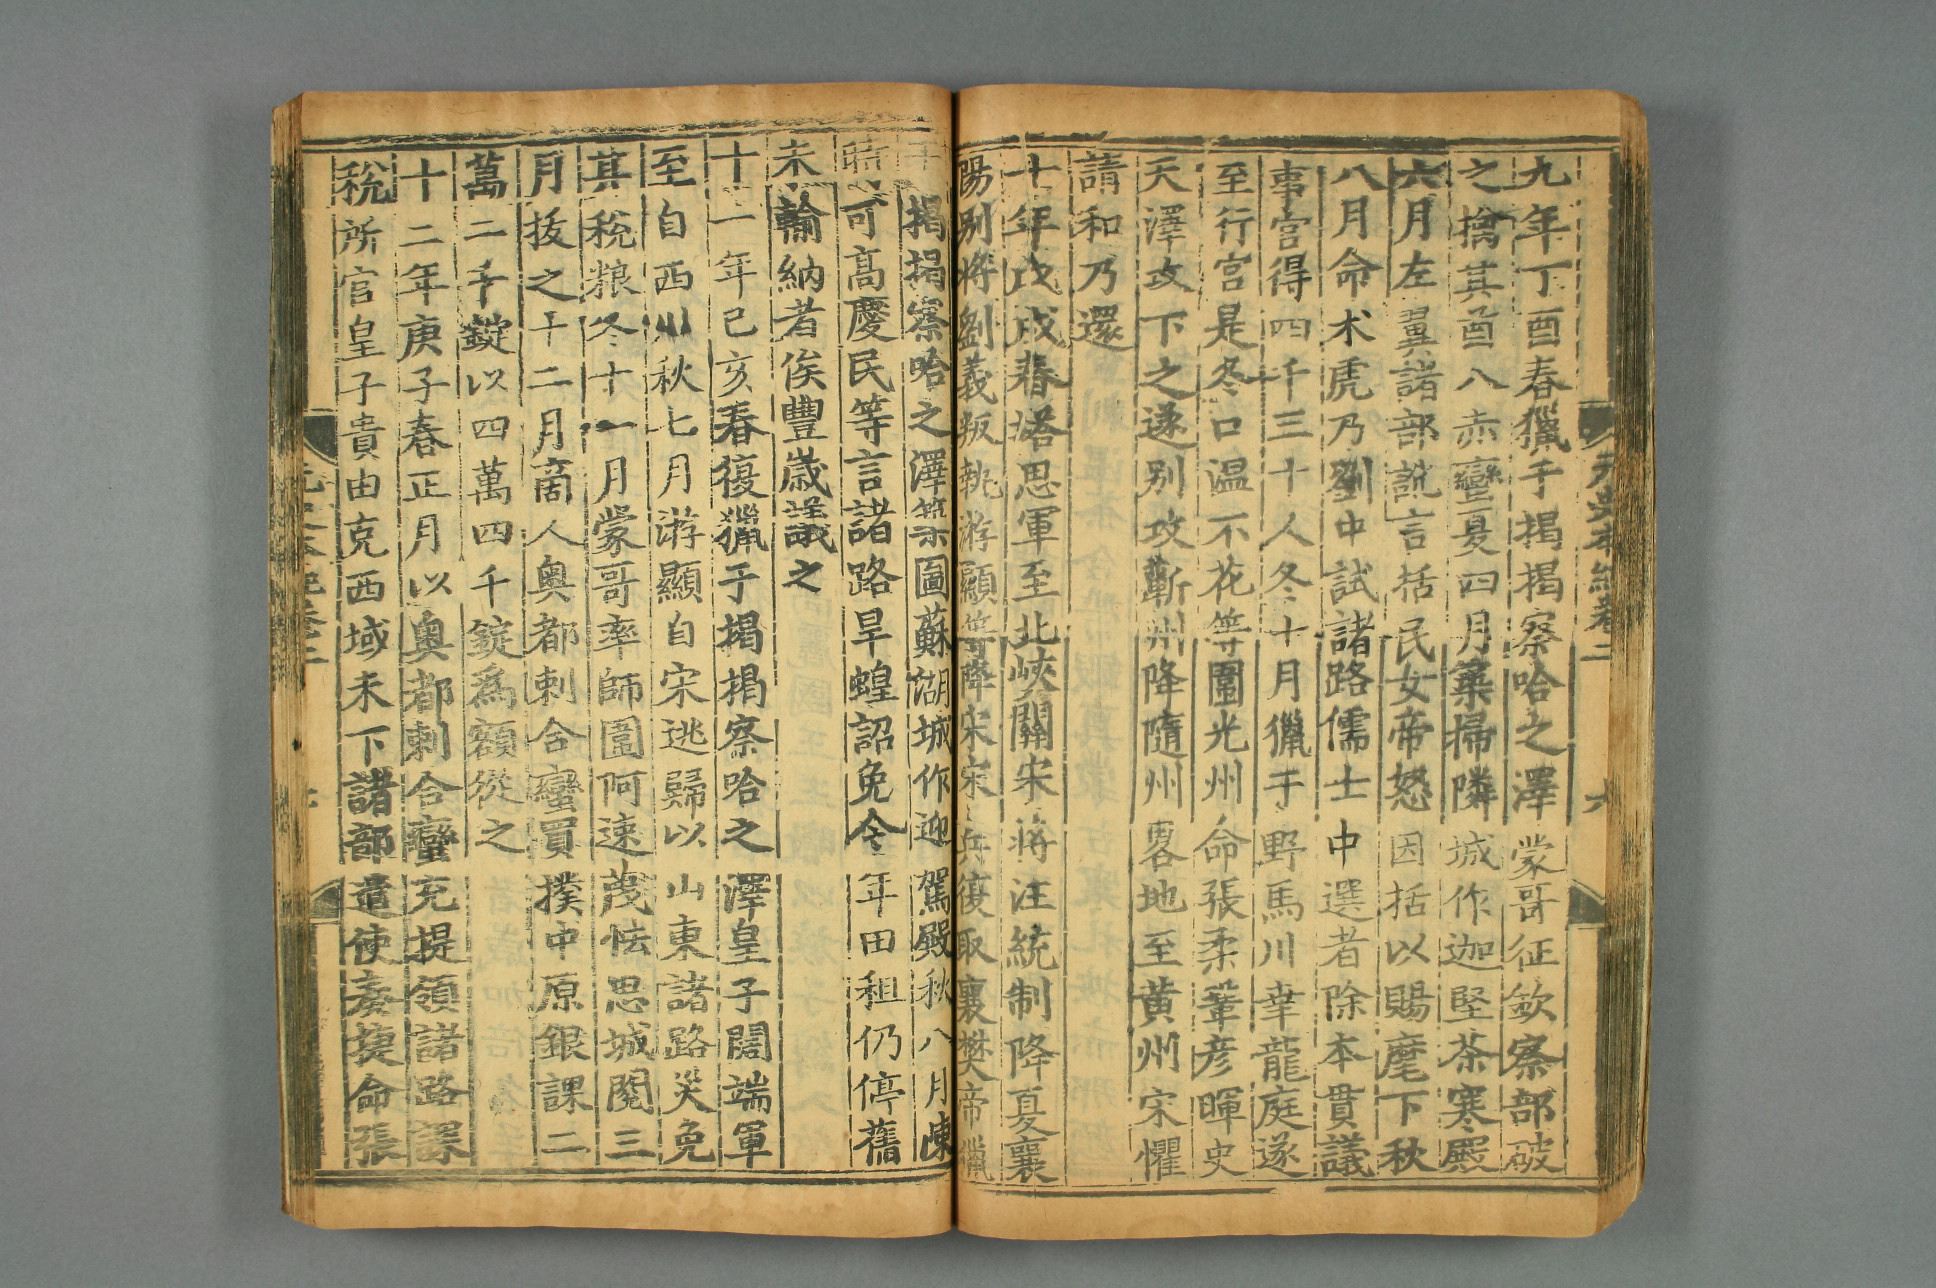 元史本紀卷二 六
九年丁酉春獵于揭揭察哈之澤蒙哥征欽察部破
之擒其酋八赤蠻夏四月築掃隣城作迦堅茶寒殿
六月左翼諸部訛言括民女帝怒因括以賜麾下秋
八月命术虎乃劉中試諸路儒士中選者除本貫議
事官得四千三十人冬十月獵于野馬川幸龍庭遂
至行宮是冬口温不花等圍光州命張柔鞏彥暉史
天澤攻下之遂別攻蘄州降隨州畧地至黃州宋懼
請和乃還
十年戊戌春塔思軍至北峽關宋將汪統制降夏襄
陽別將劉義叛執游顯等降宋宋兵復取襄樊帝獵
于揭揭察哈之澤築圖蘇湖城作迎駕殿秋八月陳
時可高慶民等言諸路旱蝗詔免今年田租仍停舊
未輸納者俟豐歲議之
十一年己亥春復獵于揭揭察哈之澤皇子闊端軍
至自西川秋七月游顯自宋逃歸以山東諸路災免
其稅粮冬十一月蒙哥率師圍阿速蔑怯思城閱三
月拔之十二月商人奥都剌合蠻買撲中原銀課二
萬二千錠以四萬四千錠為額從之
十二年庚子春正月以奥都剌合蠻充提領諸路課
稅所官皇子貴由克西域未下諸部遣使奏捷命張